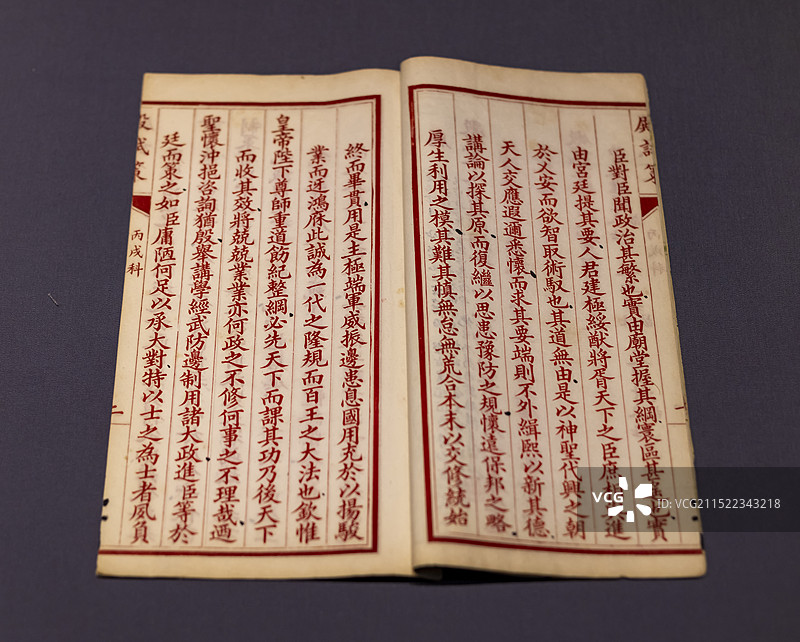 殿試策
丙戌科
臣對臣聞政治甚繁也實由廟堂握其綱寰區甚也實
由宮廷提其要人君建極綏猷將胥天下之臣庶進
於乂安而欲智取術馭也其道無由是以神聖代興之朝
天人交應遐邇悉懷而求其要端則不外緝熙以新其德
講論以探其原而復繼以思患豫防之規懷遠保邦之略
厚生利用之模其難其慎無怠無荒合本末以交修統始
終而畢貫用是主極端軍威振邊患息國用充於以揚駿
業而迓鴻庥此誠為一代之隆規而百王之大法也欽惟
皇帝陛下尊師重道飭紀整綱必先天下而課其功乃後天下
而收其效將兢兢業業亦何政之不修何事之不理哉迺
聖懷沖挹咨詢猶殷舉講學經武防邊制用諸大政進臣等於
廷而策之如臣庸陋何足以承大對特以士之為士者夙負
殿試策
丙戌科
一
VCG
VCG211522343218